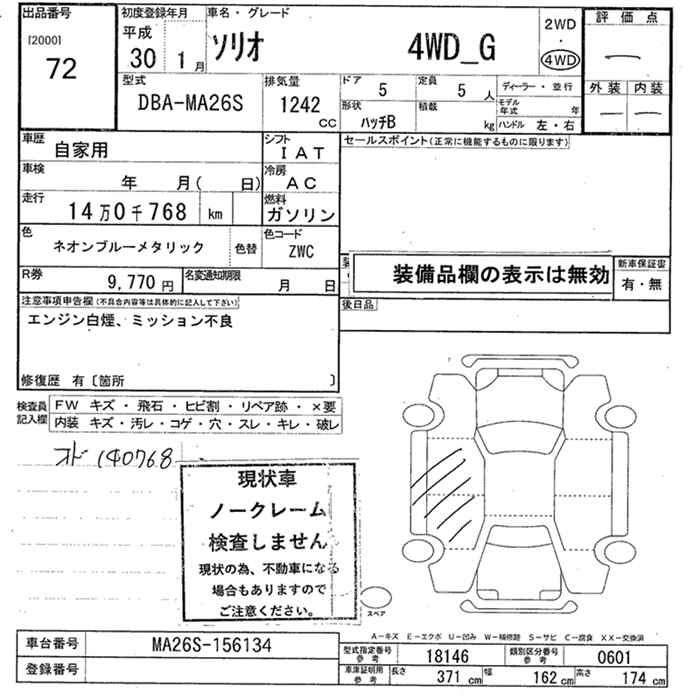 出品番号
[2000]
72
初度登録年月
平成
30 1 月
車名・グレード
ソリオ 4WD_G
2WD
・
4WD
評価点
―
外装 内装
― ―
型式
DBA-MA26S
排気量
1242
cc
ドア
5
定員
5 人
形状
ハッチB
積載
kg
ディーラー・並行
モデル年式 年
ハンドル 左・右
車歴
自家用
シフト
IAT
車検
年 月( 日)
冷房
AC
走行
14万0千768 km
燃料
ガソリン
色
ネオンブルーメタリック
色替
色コード
ZWC
R券
9,770 円
名変通知期限
月 日
セールスポイント(正常に機能するものに限ります)
装備品欄の表示は無効
新車保証書
有・無
後日品
注意事項申告欄(不具合内容等は具体的に記入して下さい)
エンジン白煙、ミッション不良
修復歴 有〔箇所 〕
検査員記入欄
FW キズ・飛石・ヒビ割・リペア跡・×要
内装 キズ・汚レ・コゲ・穴・スレ・キレ・破レ
オド 140768
現状車
ノークレーム
検査しません
現状の為、不動車になる
場合もありますので
ご注意ください。
スペア
A-キズ E-エクボ U-凹み W-補修跡 S-サビ C-腐食 XX-交換済
車台番号
MA26S-156134
登録番号
型式指定番号
参考
18146
類別区分番号
参考
0601
車庫証明用
参考
長さ
371 cm
幅
162 cm
高さ
174 cm